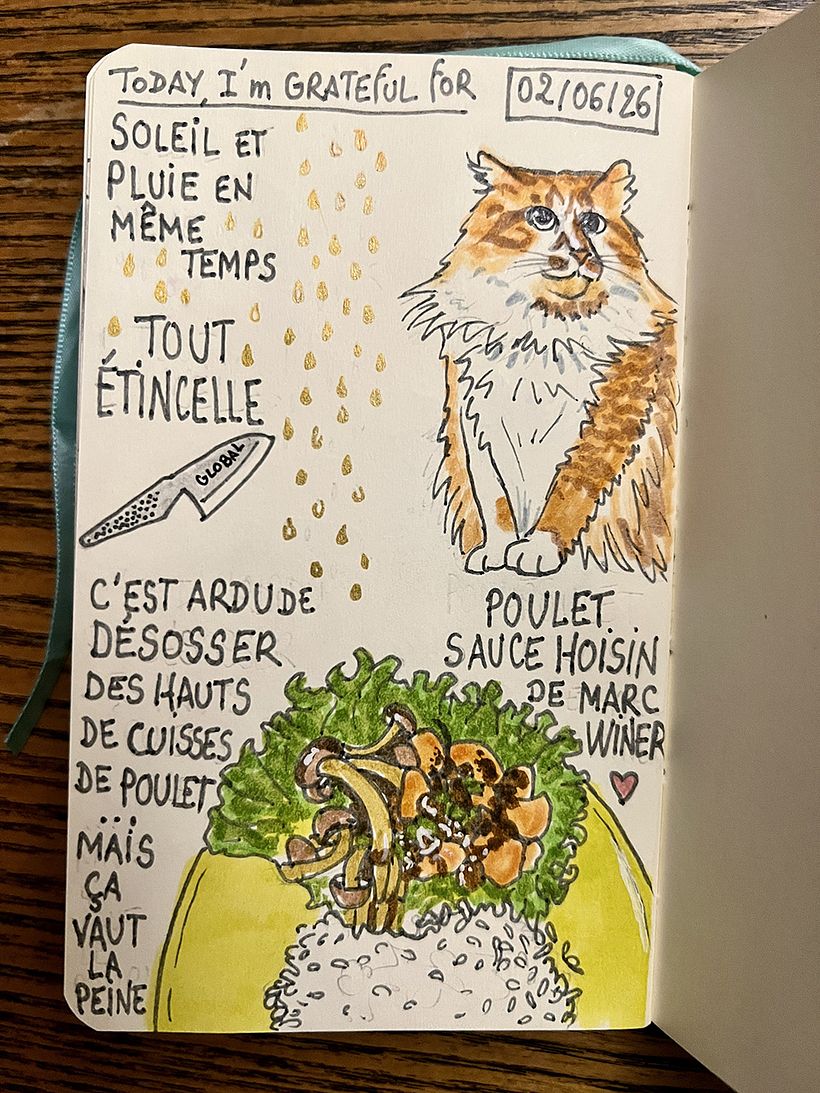 TODAY, I'm GRATEFUL FOR
02/06/26
SOLEIL ET
PLUIE EN
MÊME
TEMPS
TOUT
ÉTINCELLE
GLOBAL
C'EST ARDU DE
DÉSOSSER
DES HAUTS
DE CUISSES
DE POULET
...
MAIS
ÇA
VAUT
LA
PEINE
POULET
SAUCE HOISIN
DE MARC
WINER